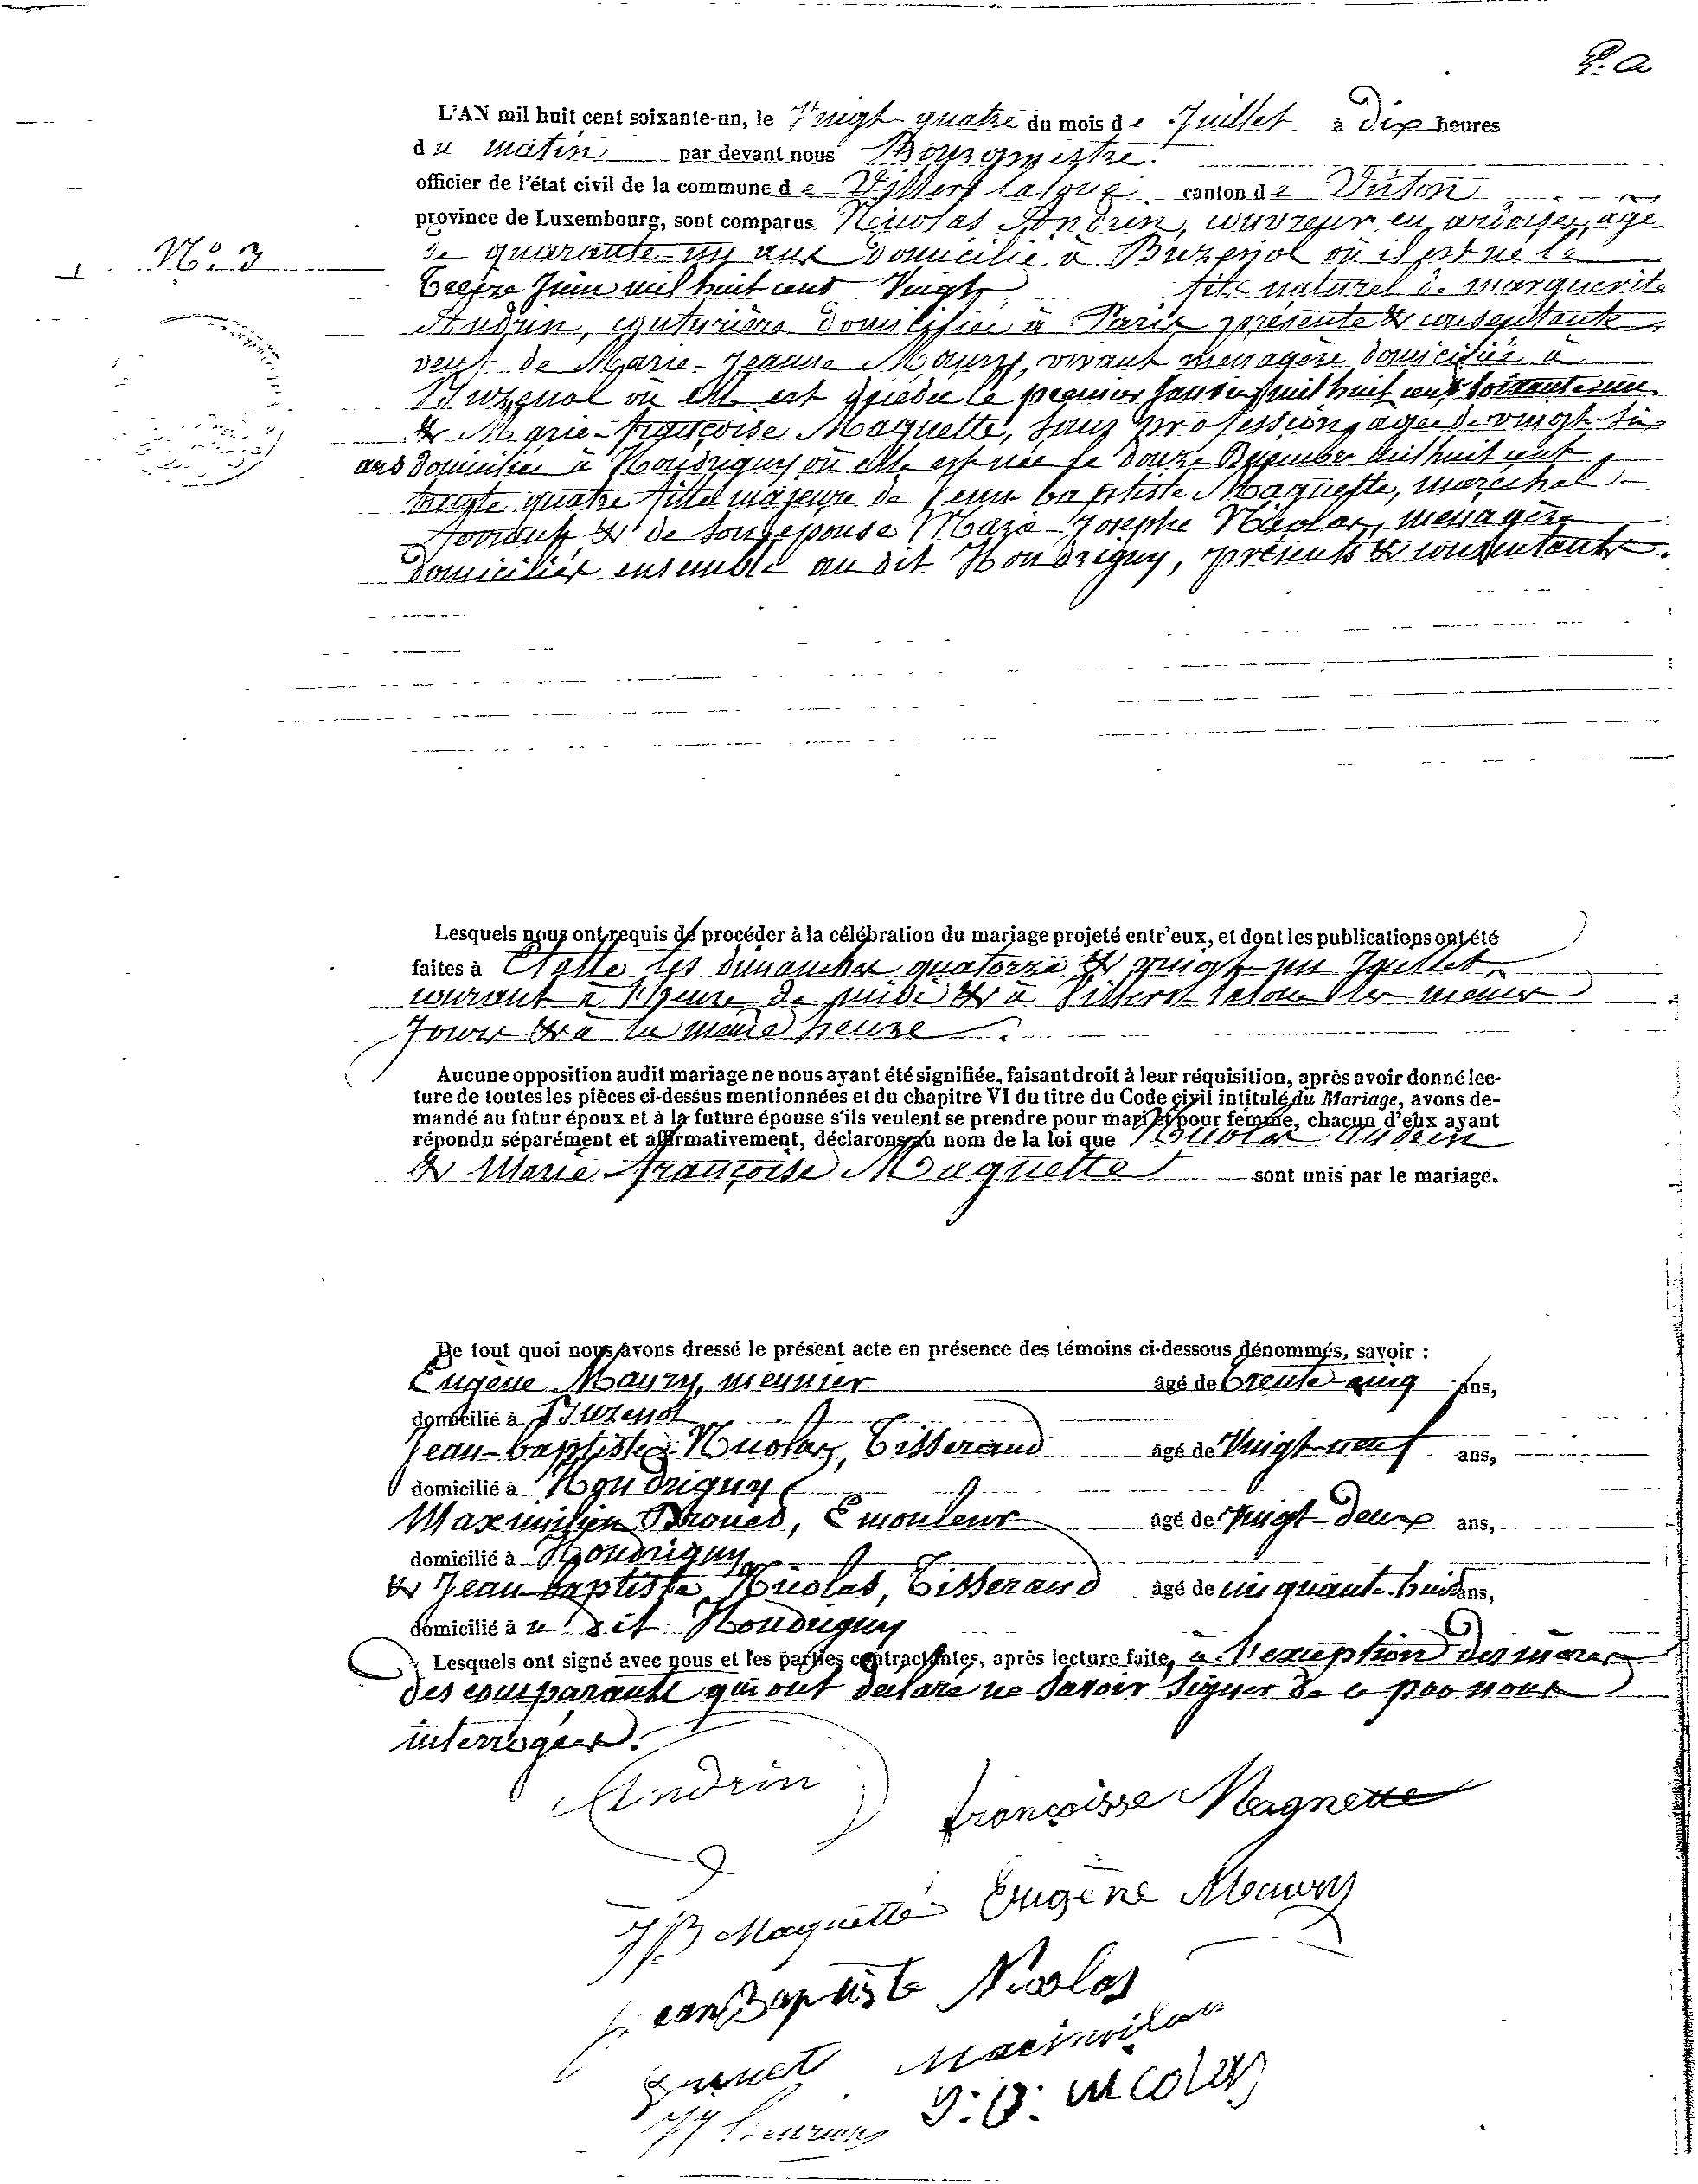 L'AN mil huit cent soixante-un, le Vingt quatre du mois de Juillet à dix heures
du matin par devant nous Bourgmestre
officier de l'état civil de la commune de Villers la loue canton de Virton
province de Luxembourg, sont comparus Nicolas Andrin, couvreur en ardoises, agé
N° 3
de quarante un ans domicilié à Buzenol où il est né le
Treize Juin mil huit cent Vingt fils naturel de marguerite
Andrin, couturière domiciliée à Paris présente & consentante,
veuf de Marie-Jeanne Maury, vivant menagère domiciliée à
Buzenol où elle est décédée le premier Janvier mil huit cent soixante un
& Marie-françoise Maquette, sans profession, agée de vingt six
ans domiciliée à Houdrigny où elle est née le douze Décembre mil huit cent
trente quatre fille majeure de Jean baptiste Maquette, maréchal
ferrant, & de son épouse Marie-Josephe Nicolas, menagère
domiciliés ensemble au dit Houdrigny, présents & consentants.
Lesquels nous ont requis de procéder à la célébration du mariage projeté entr'eux, et dont les publications ont été
faites à Etalle les dimanches quatorze & vingt un Juillet
courant à l'heure de midi & à Villers la loue les memes
Jours & à la meme heure
Aucune opposition audit mariage ne nous ayant été signifiée, faisant droit à leur réquisition, après avoir donné lec-
ture de toutes les pièces ci-dessus mentionnées et du chapitre VI du titre du Code civil intitulé du Mariage, avons de-
mandé au futur époux et à la future épouse s'ils veulent se prendre pour mari et pour femme, chacun d'eux ayant
répondu séparément et affirmativement, déclarons au nom de la loi que Nicolas Andrin
& Marie-françoise Maquette sont unis par le mariage.
De tout quoi nous avons dressé le présent acte en présence des témoins ci-dessous dénommés, savoir :
Eugène Maury, meunier âgé de trente cinq ans,
domicilié à Buzenol
Jean-baptiste Nicolas, Tisserand âgé de Vingt neuf ans,
domicilié à Houdrigny
Maximilien, Emouleur âgé de Vingt deux ans,
domicilié à Houdrigny
& Jean baptiste Nicolas, Tisserand âgé de cinquante huit ans,
domicilié à u dit Houdrigny
Lesquels ont signé avec nous et les parties contractantes, après lecture faite, à l'exception des mères
des comparants qui ont déclaré ne savoir signer de ce par nous
interrogées.
Andrin
françoisse Magnette
JB Maquette Eugène Maury
Jean Baptiste Nicolas
Maximilien
J: B: Nicolas